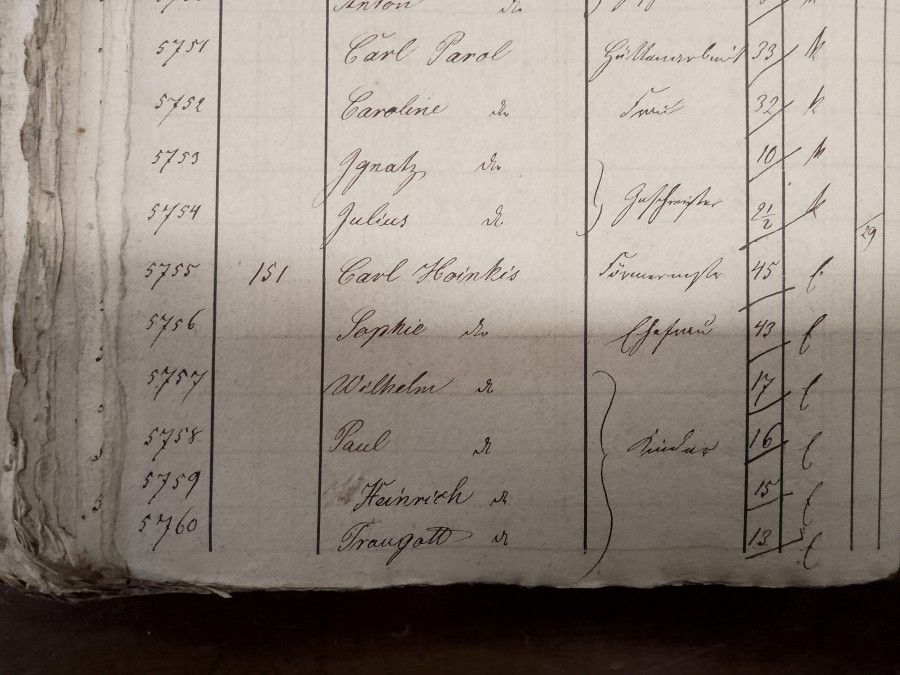 Anton do
5751 Carl Parol Hüttenarbeit 33 k
5752 Caroline do Frau 32 k
5753 Ignatz do 10 k
5754 Julius do Geschwister 2½ k
29
5755 151 Carl Hoinkis Förmermstr 45 E
5756 Sophie do Ehefrau 43 E
5757 Wilhelm do 17 E
5758 Paul do Kinder 16 E
5759 Heinrich do 15 E
5760 Traugott do 13 E